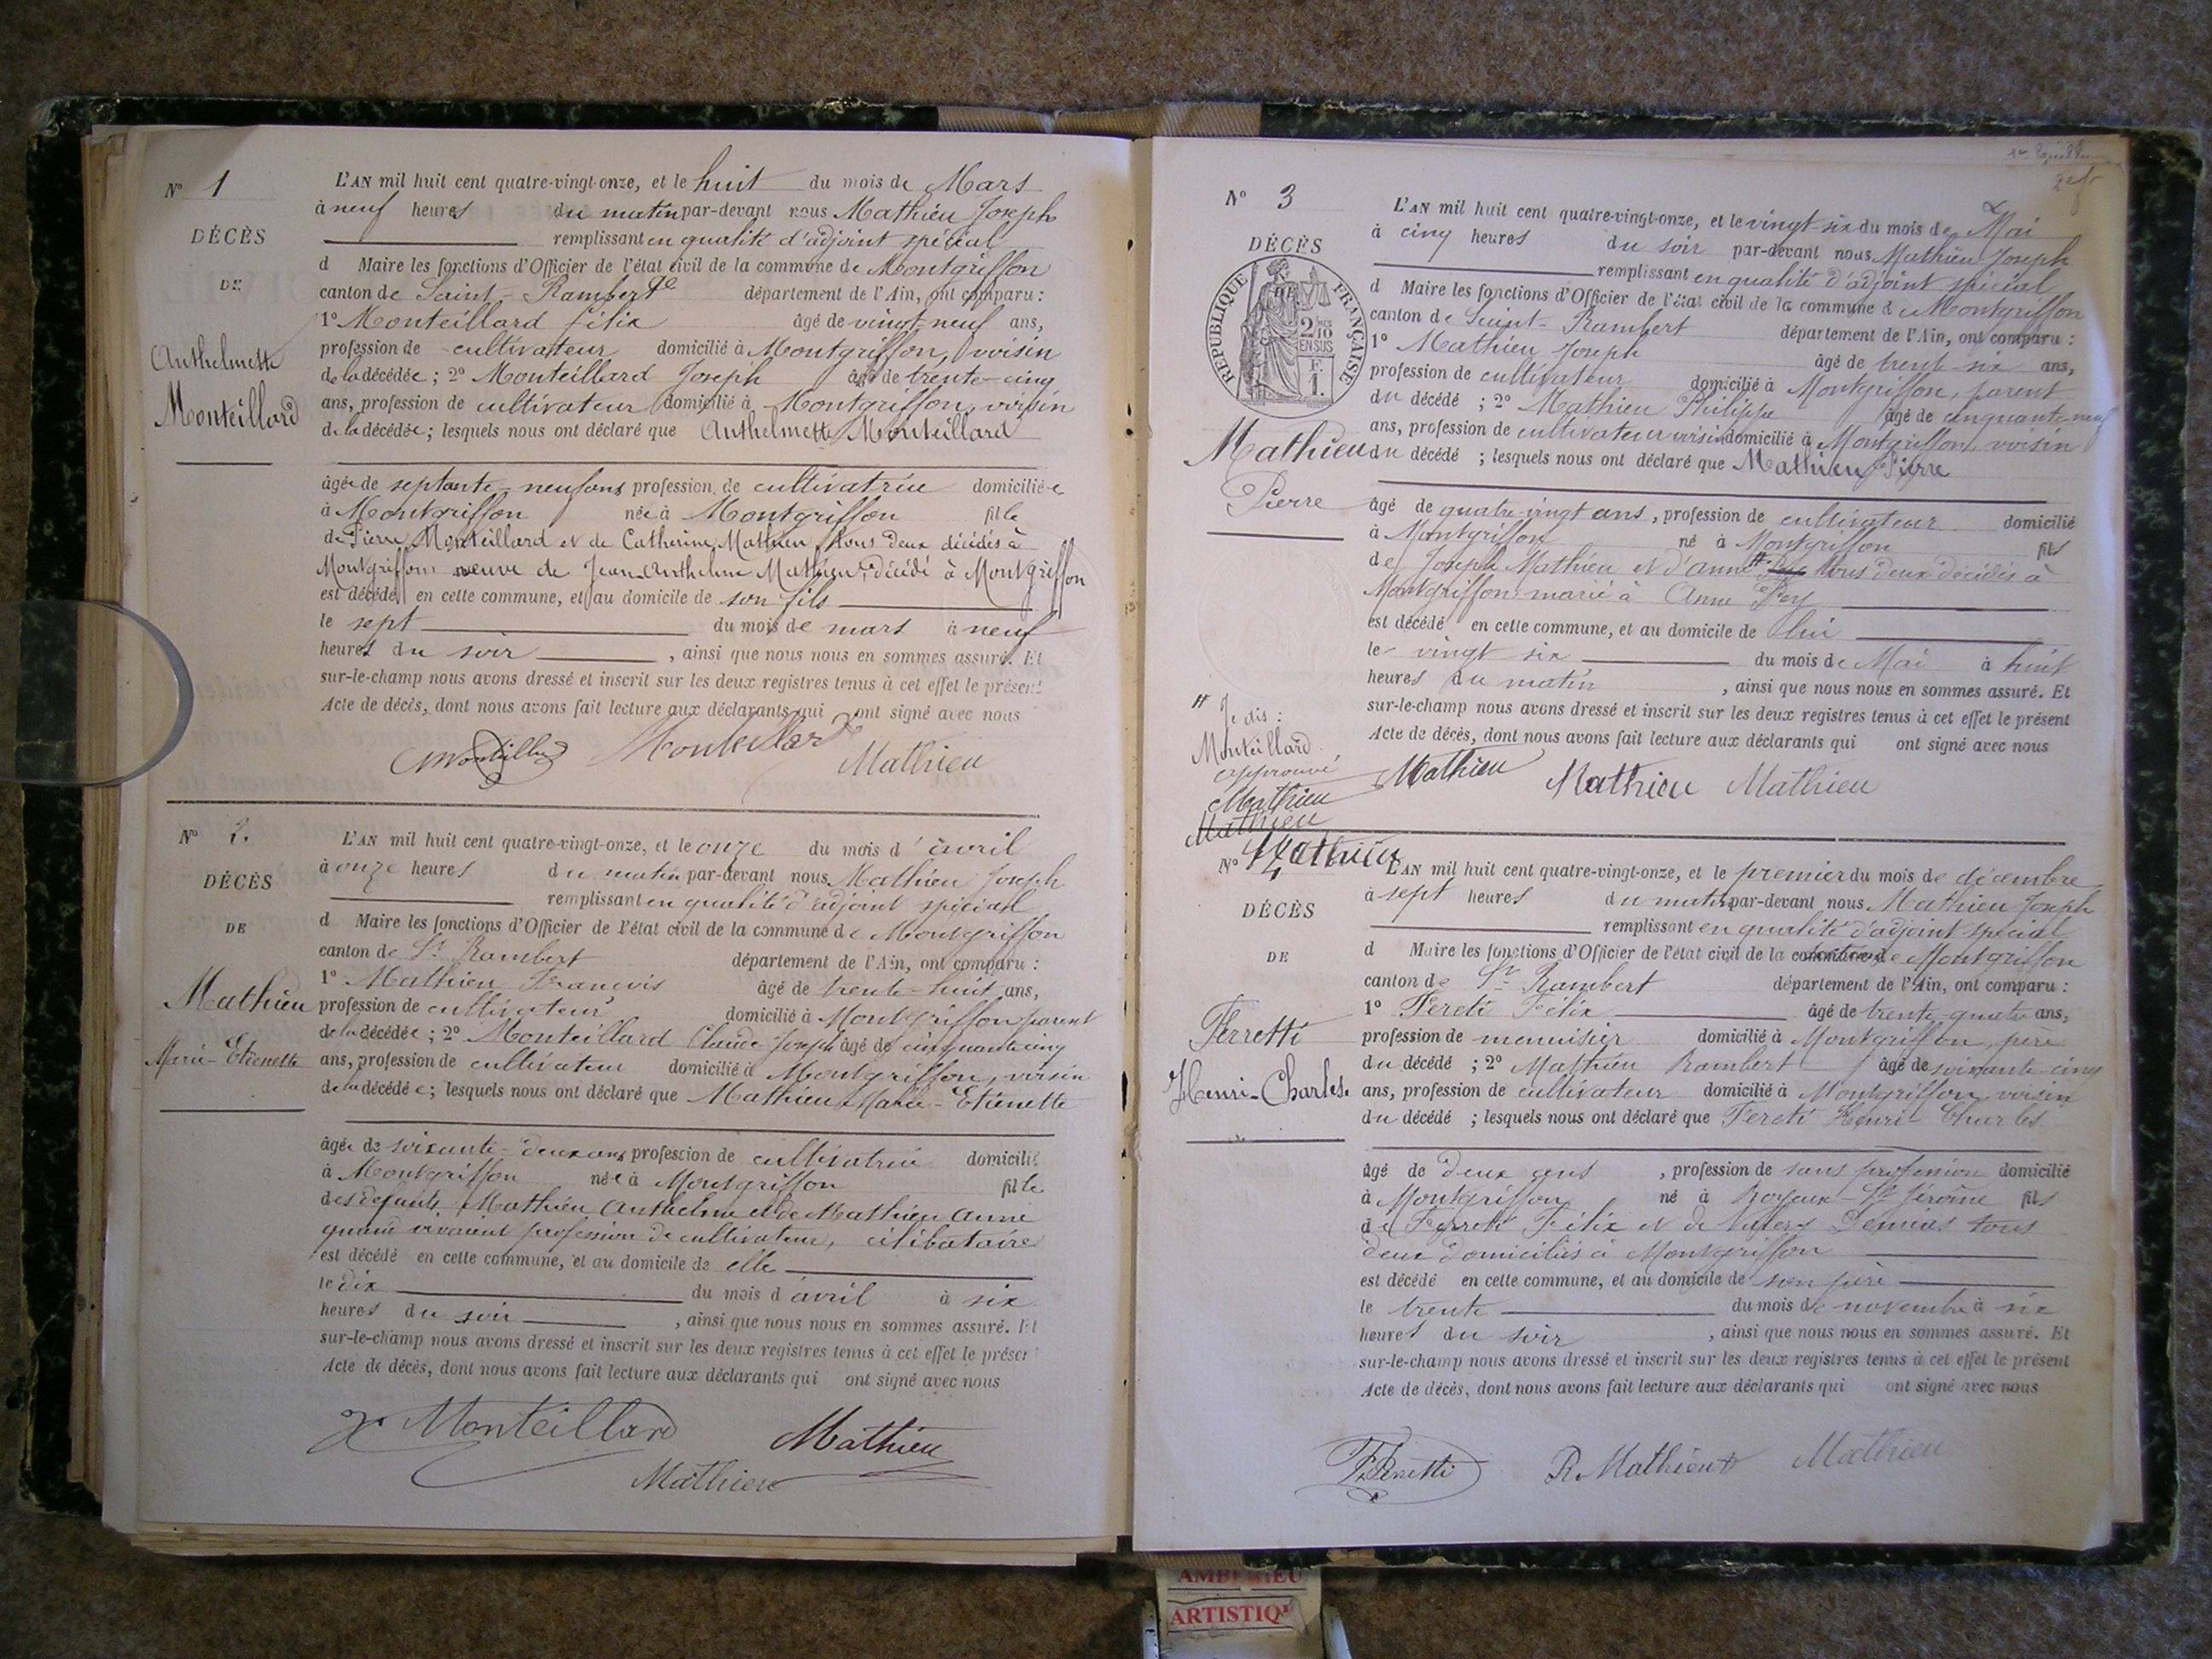 N° 1
DÉCÈS
DE
Anthelmette
Monteillard
L'AN mil huit cent quatre-vingt-onze, et le huit du mois de Mars
à neuf heures du matin par-devant nous Mathieu Joseph
remplissant en qualité d'adjoint spécial
d Maire les fonctions d'Officier de l'état civil de la commune de Montgriffon
canton de Saint-Rambert département de l'Ain, ont comparu :
1° Monteillard félix âgé de vingt-neuf ans,
profession de cultivateur domicilié à Montgriffon, voisin
de la décédée ; 2° Monteillard Joseph âgé de trente-cinq
ans, profession de cultivateur domicilié à Montgriffon, voisin
de la décédée ; lesquels nous ont déclaré que Anthelmette Monteillard
âgée de septante-neuf ans profession de cultivatrice domiciliée
à Montgriffon née à Montgriffon fille
de Pierre Monteillard et de Catherine Mathieu, tous deux décédés à
Montgriffon veuve de Jean-Anthelme Mathieu, décédé à Montgriffon
est décédé en cette commune, et au domicile de son fils
le sept du mois de mars à neuf
heures du soir , ainsi que nous nous en sommes assuré. Et
sur-le-champ nous avons dressé et inscrit sur les deux registres tenus à cet effet le présent
Acte de décès, dont nous avons fait lecture aux déclarants qui ont signé avec nous
Monteillard Mathieu
N° 2.
DÉCÈS
DE
Mathieu
Marie-Etienette
L'AN mil huit cent quatre-vingt-onze, et le onze du mois d'avril
à onze heures du matin par-devant nous Mathieu Joseph
remplissant en qualité d'adjoint spécial
d Maire les fonctions d'Officier de l'état civil de la commune de Montgriffon
canton de St Rambert département de l'Ain, ont comparu :
1° Mathieu Francois âgé de trente-huit ans,
profession de cultivateur domicilié à Montgriffon parent
de la décédée ; 2° Monteillard Claude Joseph âgé de cinquante cinq
ans, profession de cultivateur domicilié à Montgriffon, voisin
de la décédée ; lesquels nous ont déclaré que Mathieu Marie-Etienette
âgée de soixante-deux ans profession de cultivatrice domicilié
à Montgriffon née à Montgriffon fille
des défunts Mathieu Anthelme et de Mathieu Anne
quand vivaient profession de cultivateur, célibataire
est décédé en cette commune, et au domicile de elle
le dix du mois d'avril à six
heures du soir , ainsi que nous nous en sommes assuré. Et
sur-le-champ nous avons dressé et inscrit sur les deux registres tenus à cet effet le présent
Acte de décès, dont nous avons fait lecture aux déclarants qui ont signé avec nous
Monteillard Mathieu
Mathieu
N° 3
DÉCÈS
DE
RÉPUBLIQUE FRANÇAISE
2/10 EN SUS
F. 1.
Mathieu
Pierre
L'AN mil huit cent quatre-vingt-onze, et le vingt-six du mois de Mai
à cinq heures du soir par-devant nous Mathieu Joseph
remplissant en qualité d'adjoint spécial
d Maire les fonctions d'Officier de l'état civil de la commune d Montgriffon
canton de Saint-Rambert département de l'Ain, ont comparu :
1° Mathieu Joseph âgé de trente-six ans,
profession de cultivateur domicilié à Montgriffon, parent
du décédé ; 2° Mathieu Philippe âgé de cinquante-neuf
ans, profession de cultivateur voisin domicilié à Montgriffon voisin
du décédé ; lesquels nous ont déclaré que Mathieu Pierre
âgé de quatre-vingt ans, profession de cultivateur domicilié
à Montgriffon né à Montgriffon fils
de Joseph Mathieu et d'anne # tous deux décédés à
Montgriffon marié à Anne Fey
est décédé en cette commune, et au domicile de lui
le vingt six du mois de Mai à huit
heures du matin , ainsi que nous nous en sommes assuré. Et
sur-le-champ nous avons dressé et inscrit sur les deux registres tenus à cet effet le présent
Acte de décès, dont nous avons fait lecture aux déclarants qui ont signé avec nous
# Je dis :
Monteillard
approuvé
Mathieu
Mathieu
Mathieu
Mathieu Mathieu Mathieu
N° 4
DÉCÈS
DE
Ferretti
Henri-Charles
L'AN mil huit cent quatre-vingt-onze, et le premier du mois de décembre
à sept heures du matin par-devant nous Mathieu Joseph
remplissant en qualité d'adjoint spécial
d Maire les fonctions d'Officier de l'état civil de la commune de Montgriffon
canton de St Rambert département de l'Ain, ont comparu :
1° Fereti Félix âgé de trente-quatre ans,
profession de menuisier domicilié à Montgriffon, père
du décédé ; 2° Mathieu Rambert âgé de soixante-cinq
ans, profession de cultivateur domicilié à Montgriffon voisin
du décédé ; lesquels nous ont déclaré que Fereti Henri Charles
âgé de deux ans , profession de sans profession domicilié
à Montgriffon né à St Jérôme fils
de Ferreti Félix et de tous
deux domiciliés à Montgriffon
est décédé en cette commune, et au domicile de son père
le trente du mois de novembre à six
heures du soir , ainsi que nous nous en sommes assuré. Et
sur-le-champ nous avons dressé et inscrit sur les deux registres tenus à cet effet le présent
Acte de décès, dont nous avons fait lecture aux déclarants qui ont signé avec nous
F. Ferretti R Mathieu Mathieu
ARTISTIQ